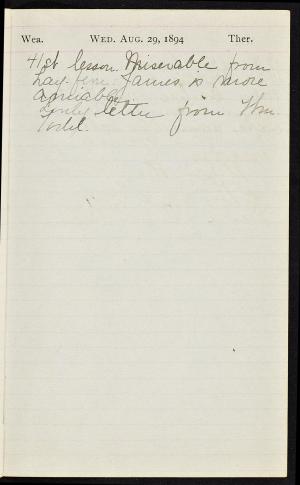 Wea. WED. AUG. 29, 1894 Ther.
41st lesson. Miserable from
hay fever. James is more
amiable.
letter from Wm